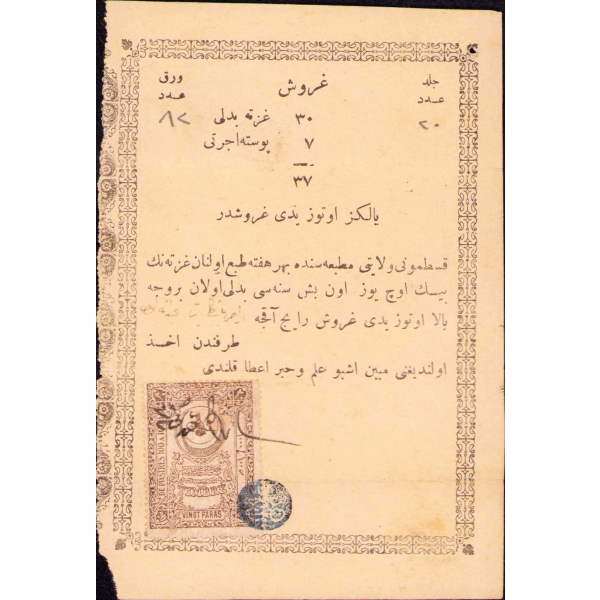 جلد
عدد
٢٠
غروش
ورق
عدد
٨٢
٣٠ غزته بدلى
٧ پوسته اجرتى
٣٧
يالكز اوتوز يدى غروشدر
قسطمونى ولايتى مطبعه سنده بهر هفته طبع اولنان غزته نك
بيك اوچ يوز اون بش سنه سى بدلى اولان بروجه
بالا اوتوز يدى غروش رايج آقچه
طرفندن اخذ
اولنديغنى مبين اشبو علم وخبر اعطا قلندى
VINGT PARAS